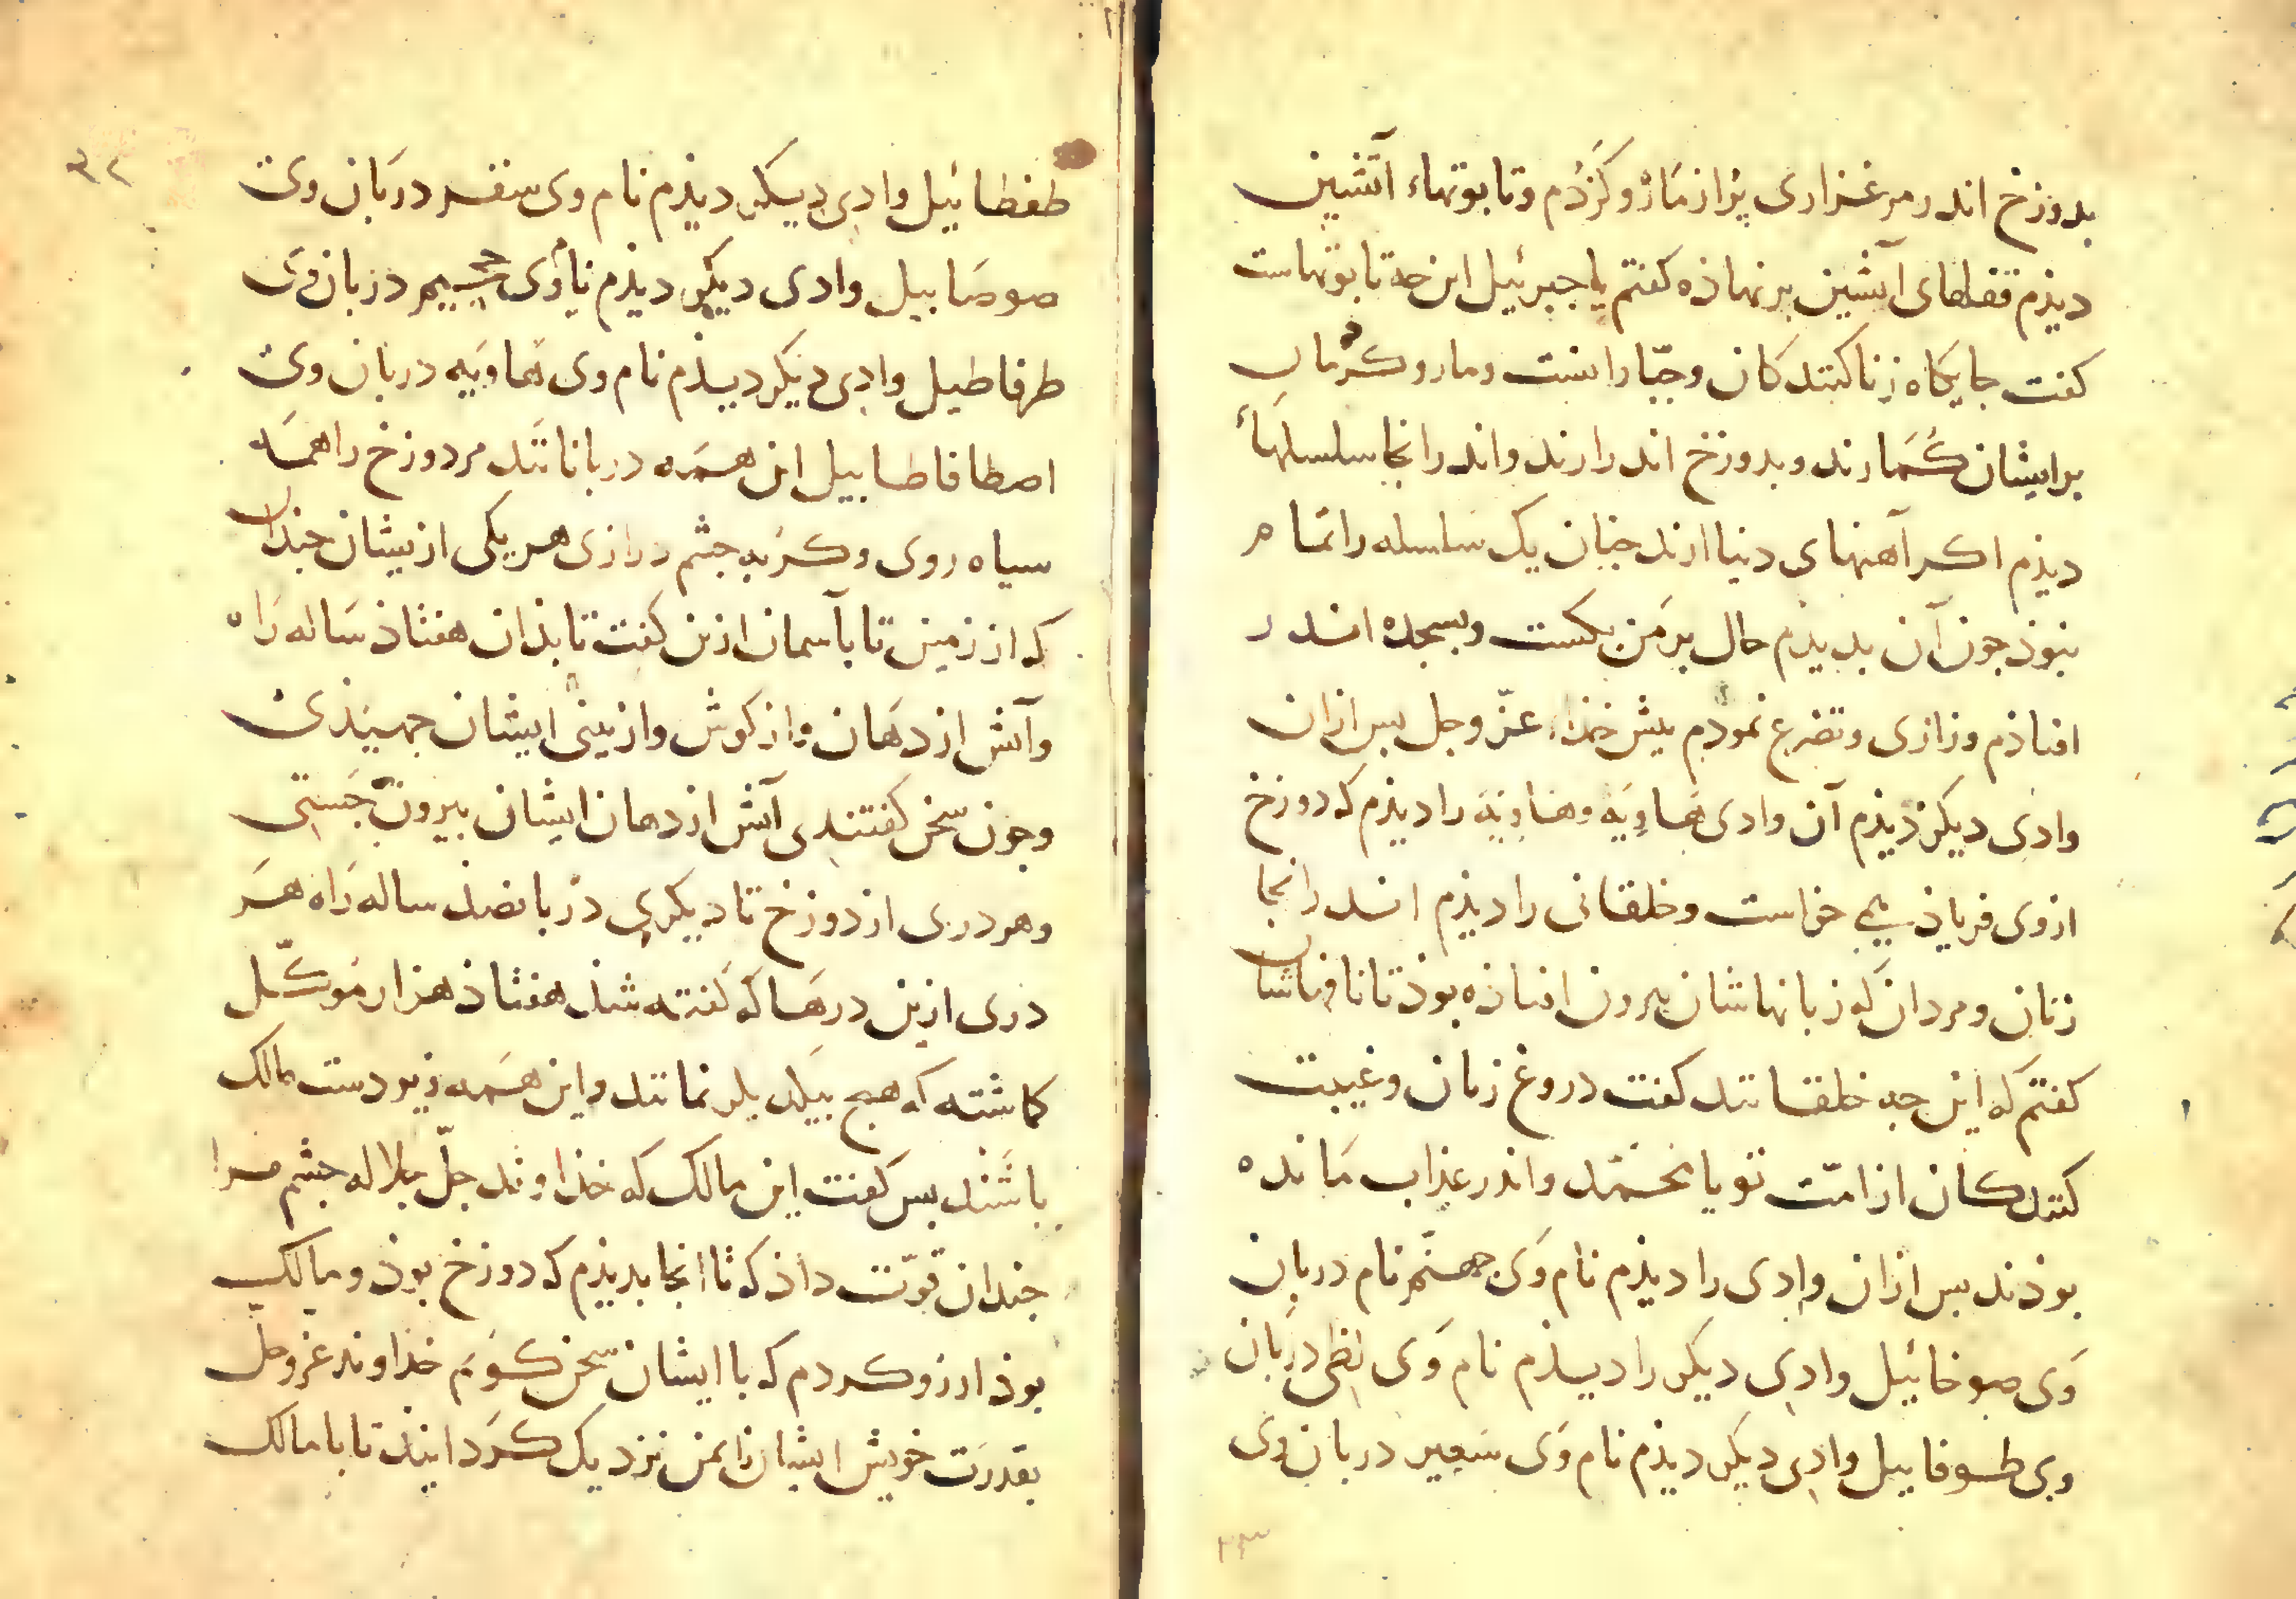 بدوزخ اندر مرغزاری پراز مارْ و کَژدُم و تابوتهاء آتشین
دیذم قفلهای آتشین برنهاذه کفتم یا جبرئیل این جه تابوتهاست
کفت جایکاه زناکنندکان و جبّارانست و مار و کژدمان
برایشان کُمارند و بدوزخ اندرارند و اندرانجا سلسلهاءْ
دیذم اکر آهنهای دنیا ارند جنان یک سلسله را تمام
نبوذ جون آن بدیذم حال برمن بکست و بسجده اندر
افتاذم و زاری و تضرع نموذم بیش خذاء عزّ و جل بس ازان
وادی دیکر دیذم آن وادی هاوِیَه و هاوِیَه را دیذم که دوزخ
ازوی فریاذ می خواست و خلقانی را دیذم اندرانجا
زنان و مردان که زبانهاشان بیرون افتاذه بوذ تا نافهاشان
کفتم که این جه خلقانند کفت دروغ زنان و غیبت
کنندکان از امّت تو یا محمّد و اندر عذاب مانده
بوذند بس ازان وادی را دیذم نام وَی جهنّم نام دربان
وَی صوخائیل وادی دیکر را دیذم نام وَی لظی دربان
وی طوفاییل وادی دیکر دیذم نام وَی سَعیر دربان وی
۲۳
۳۲
طغطائیل وادی دیکر دیذم نام وی سقر دربان وی
صوصابیل وادی دیکر دیذم نام وَی جحیم دربان وَی
طرفاطیل وادی دیکر دیذم نام وی هاویَه دربان وی
اصطافاطابیل این همه دربانانند مر دوزخ را همه
سیاه روی و کربه جشم درازی هر یکی ازیشان جندان
که از زمین تا بآسمان ازین کفت تا بذان هفتاذ ساله رَاه
و آتش از دهان و از کوش و از بینی ایشان جهیذی
و جون سخن کفتندی آتش از دهان ایشان بیرون جَستی
و هر دری از دوزخ تا دیکری در بانصذ ساله رَاه هر
دری ازین درها که کفته شذ هفتاذ هزار موکّل
کماشته که هیج بیکدیکر نمانند و این همه زیر دست مالک
باشند بس کفت این مالک که خذاوند جلّ جلاله جشم مرا
جندان قوّت داذ که تا انجا بدیذم که دوزخ بوذ و مالک
بوذ ارزو کردم که با ایشان سخن کویم خذاوند عزوجل
بقدرت خویش ایشان را بمن نزدیک کردانیذ تا با مالک